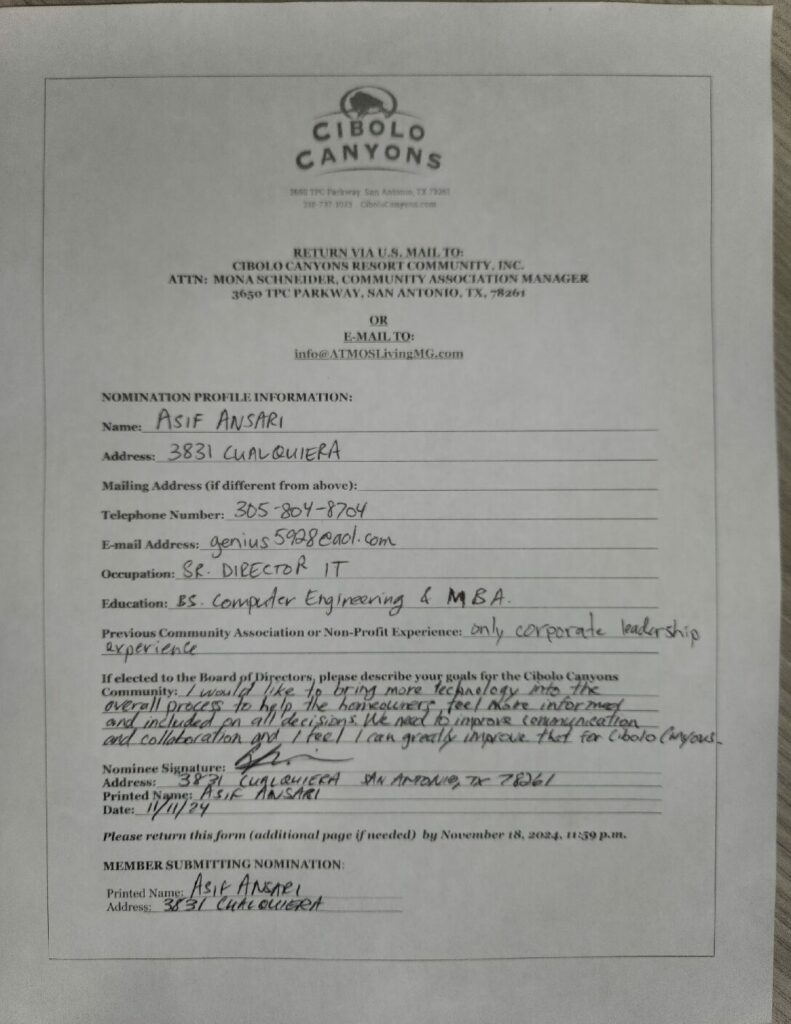 CIBOLO
CANYONS
3650 TPC Parkway San Antonio, TX 78261
CiboloCanyons.com
RETURN VIA U.S. MAIL TO:
CIBOLO CANYONS RESORT COMMUNITY, INC.
ATTN: MONA SCHNEIDER, COMMUNITY ASSOCIATION MANAGER
3650 TPC PARKWAY, SAN ANTONIO, TX, 78261
OR
E-MAIL TO:
info@ATMOSLivingMG.com
NOMINATION PROFILE INFORMATION:
Name: ASIF ANSARI
Address: 3831 CUALQUIERA
Mailing Address (if different from above):
Telephone Number: 305-804-8704
E-mail Address: genius5928@aol.com
Occupation: SR. DIRECTOR IT
Education: BS. Computer Engineering & MBA.
Previous Community Association or Non-Profit Experience: only corporate leadership
experience
If elected to the Board of Directors, please describe your goals for the Cibolo Canyons
Community: I would like to bring more technology into the
overall process to help the homeowners feel more informed
and included on all decisions. We need to improve communication
and collaboration and I feel I can greatly improve that for Cibolo Canyons.
Nominee Signature:
Address: 3831 CUALQUIERA SAN ANTONIO, TX 78261
Printed Name: ASIF ANSARI
Date: 11/11/24
Please return this form (additional page if needed) by November 18, 2024, 11:59 p.m.
MEMBER SUBMITTING NOMINATION:
Printed Name: ASIF ANSARI
Address: 3831 CUALQUIERA